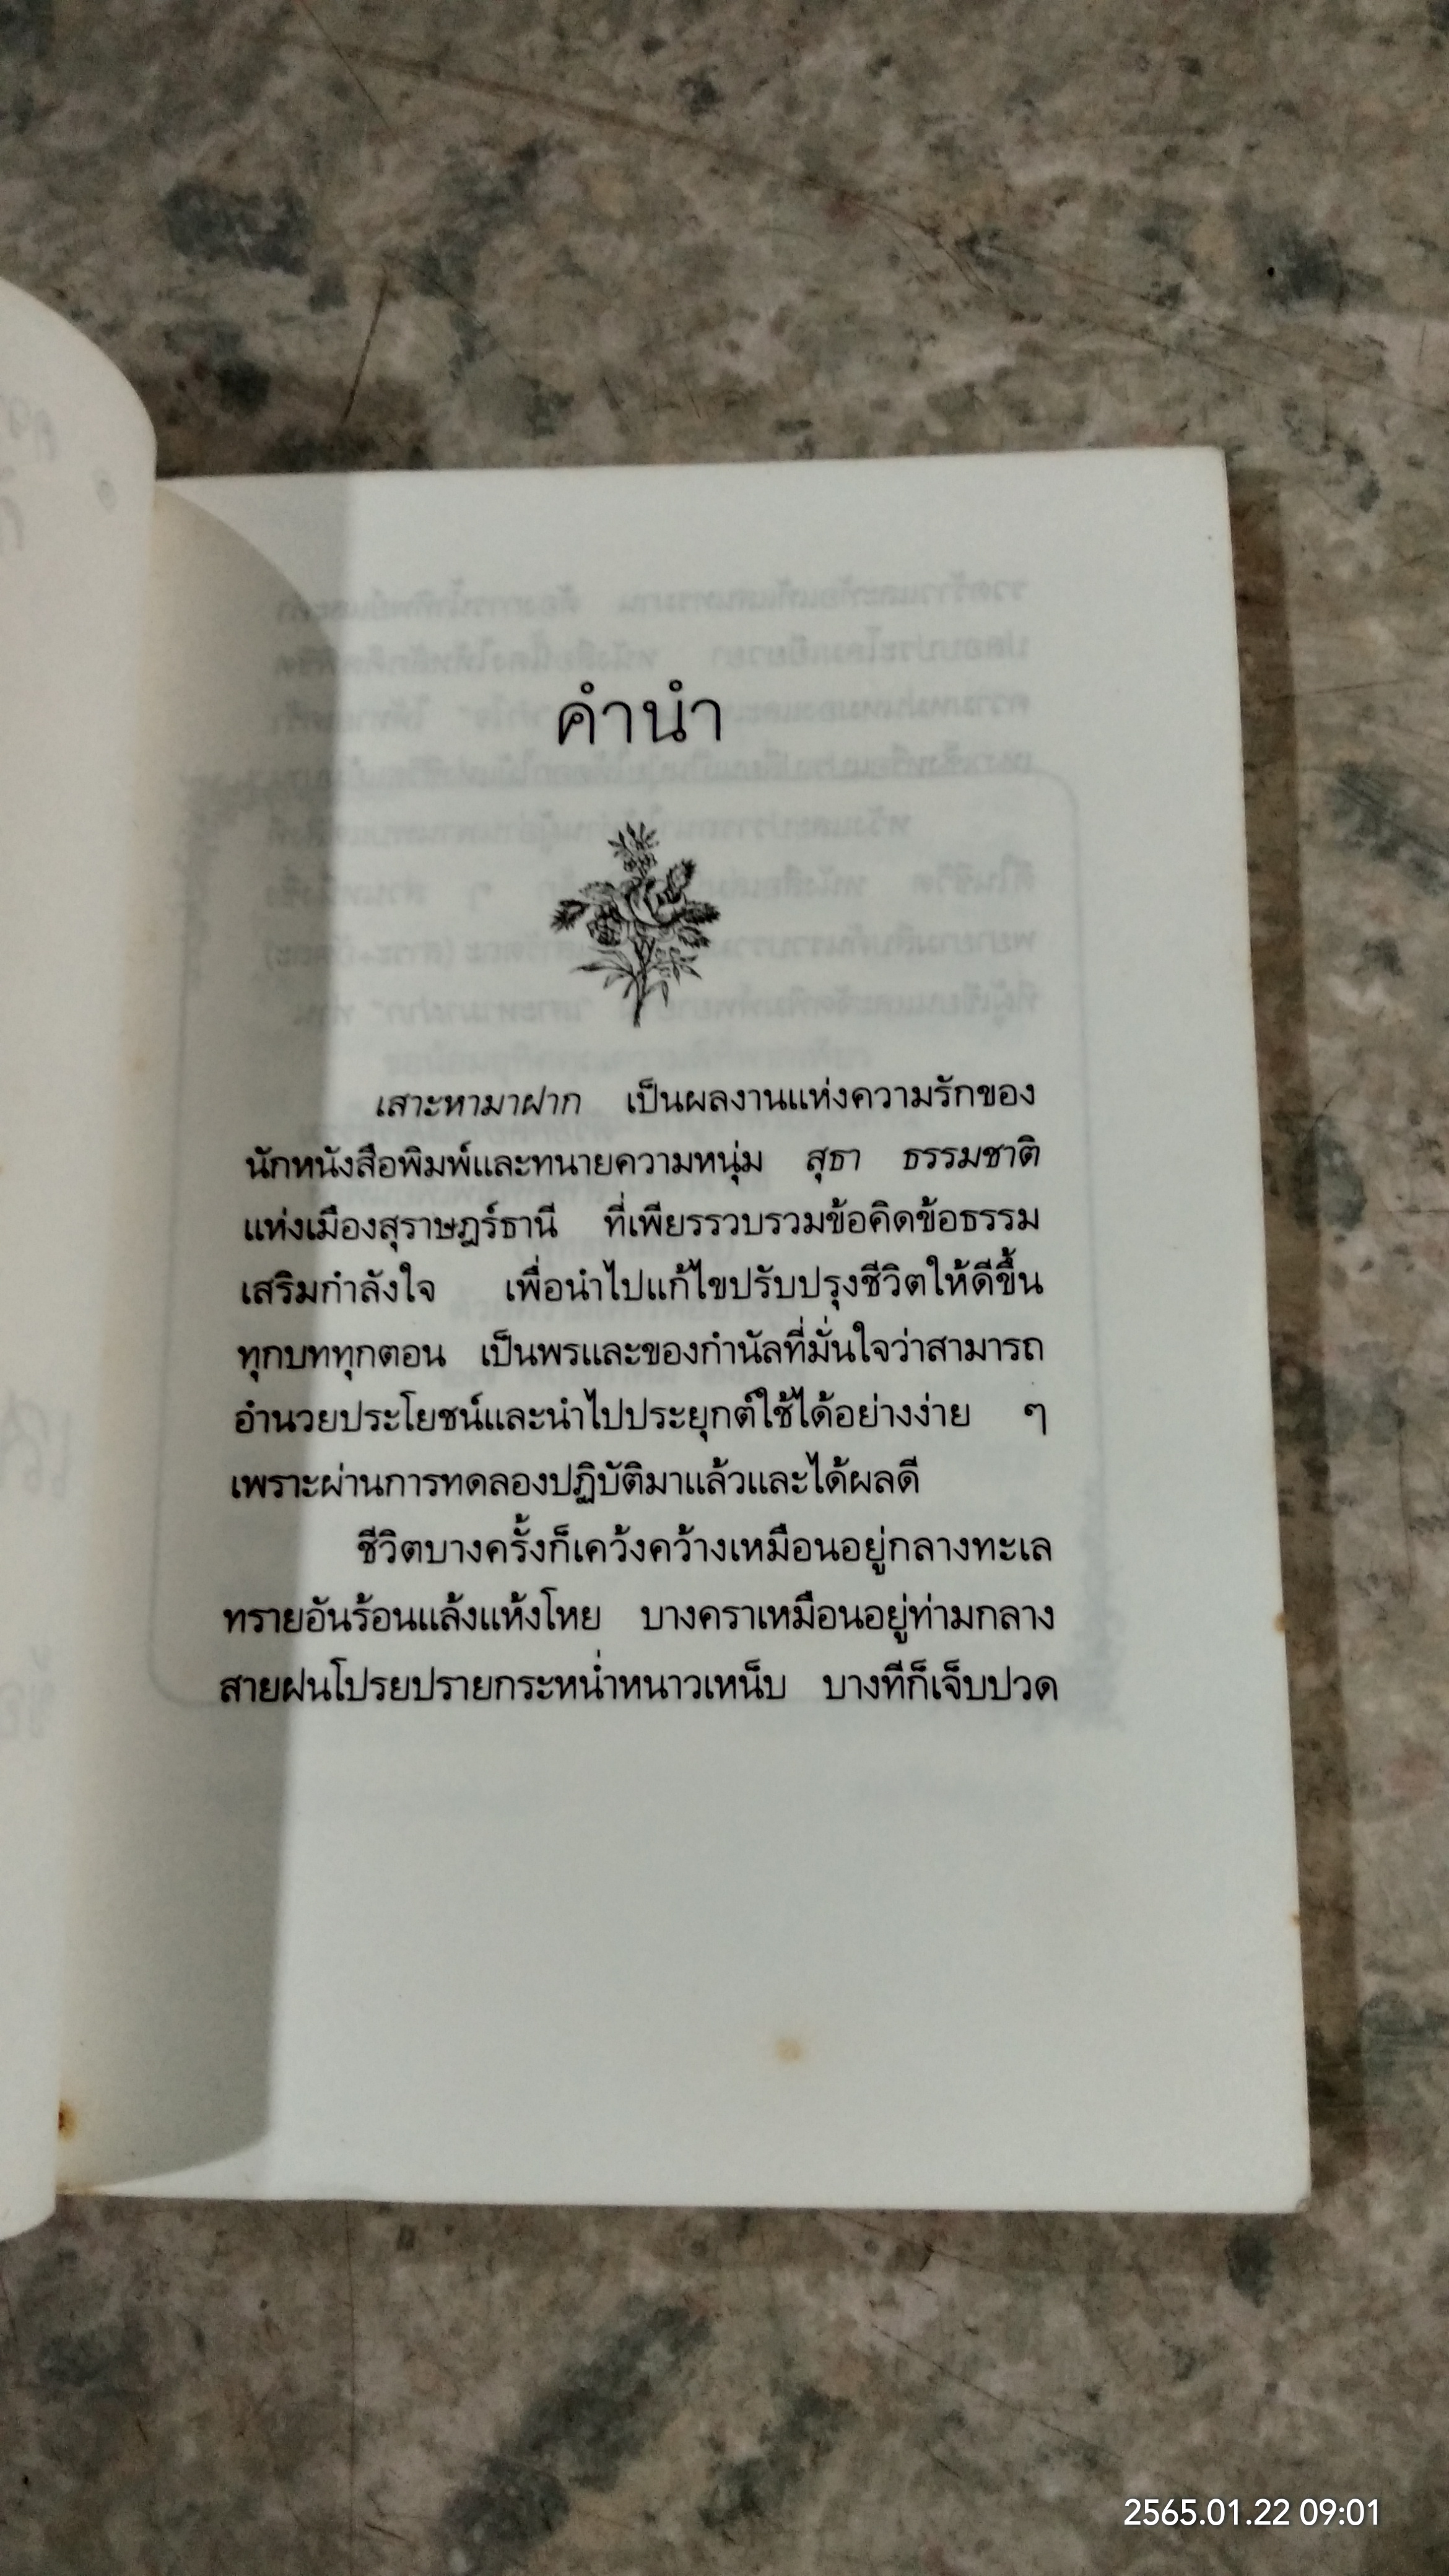 คำนำ
เสาะหามาฝาก เป็นผลงานแห่งความรักของ
นักหนังสือพิมพ์และทนายความหนุ่ม สุธา ธรรมชาติ
แห่งเมืองสุราษฎร์ธานี ที่เพียรรวบรวมข้อคิดข้อธรรม
เสริมกำลังใจ เพื่อนำไปแก้ไขปรับปรุงชีวิตให้ดีขึ้น
ทุกบททุกตอน เป็นพรและของกำนัลที่มั่นใจว่าสามารถ
อำนวยประโยชน์และนำไปประยุกต์ใช้ได้อย่างง่าย ๆ
เพราะผ่านการทดลองปฏิบัติมาแล้วและได้ผลดี
ชีวิตบางครั้งก็เคว้งคว้างเหมือนอยู่กลางทะเล
ทรายอันร้อนแล้งแห้งโหย บางคราเหมือนอยู่ท่ามกลาง
สายฝนโปรยปรายกระหน่ำหนาวเหน็บ บางทีก็เจ็บปวด
2565.01.22 09:01